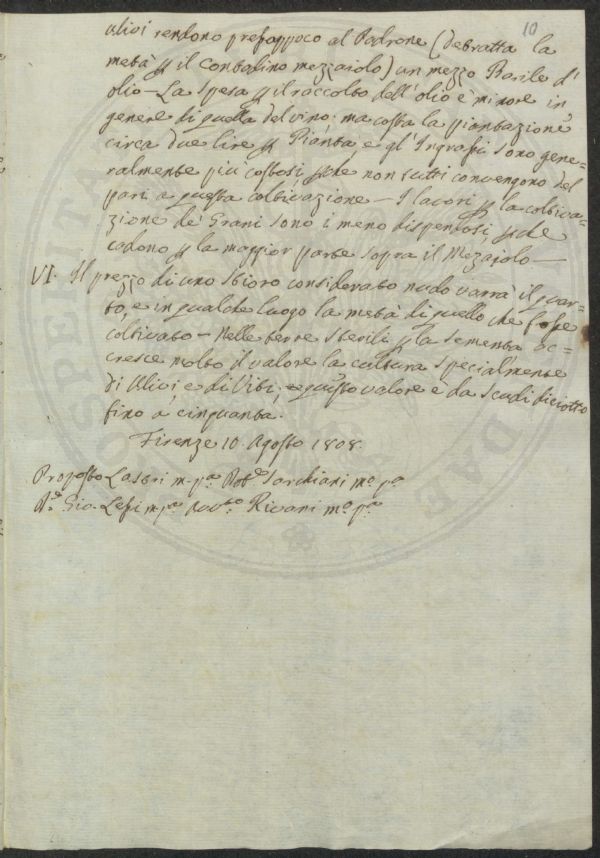 10
ulivi rendono pressappoco al Padrone (detratta la
metà p il Contadino mezzaiolo) un mezzo Barile d'
olio – La spesa p il raccolto dell'olio è minore in
genere di quella del vino: ma costa la piantazione
circa due lire p Pianta, e gl'Ingrassi sono gene-
ralmente più costosi, pche non tutti convengono del
pari a questa coltivazione – I lavori p la coltiva-
zione de' Grani sono i meno dispendiosi, pche
cadono p la maggior parte sopra il Mezaiolo –
VI. Il prezzo di uno Stioro considerato nudo varrà il quar-
to, e in qualche luogo la metà di quello che fosse
coltivato – Nelle terre sterili p la sementa ac-
cresce molto il valore la cultura specialmente
di Ulivi e di Viti, e questo valore è da scudi diciotto
fino a cinquanta.
Firenze 10. Agosto 1808.
Proposto Lastri m. pa Dott. Sarchiani mo pa
Dr. Gio. Lessi m pa Avvto Rivani mo pa
PROSPERITATI
DAE